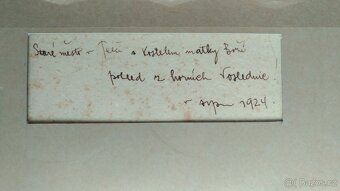 Staré město v Telči s kostelem matky Boží
pohled z horních
v srpnu 1924.
Bazos.cz